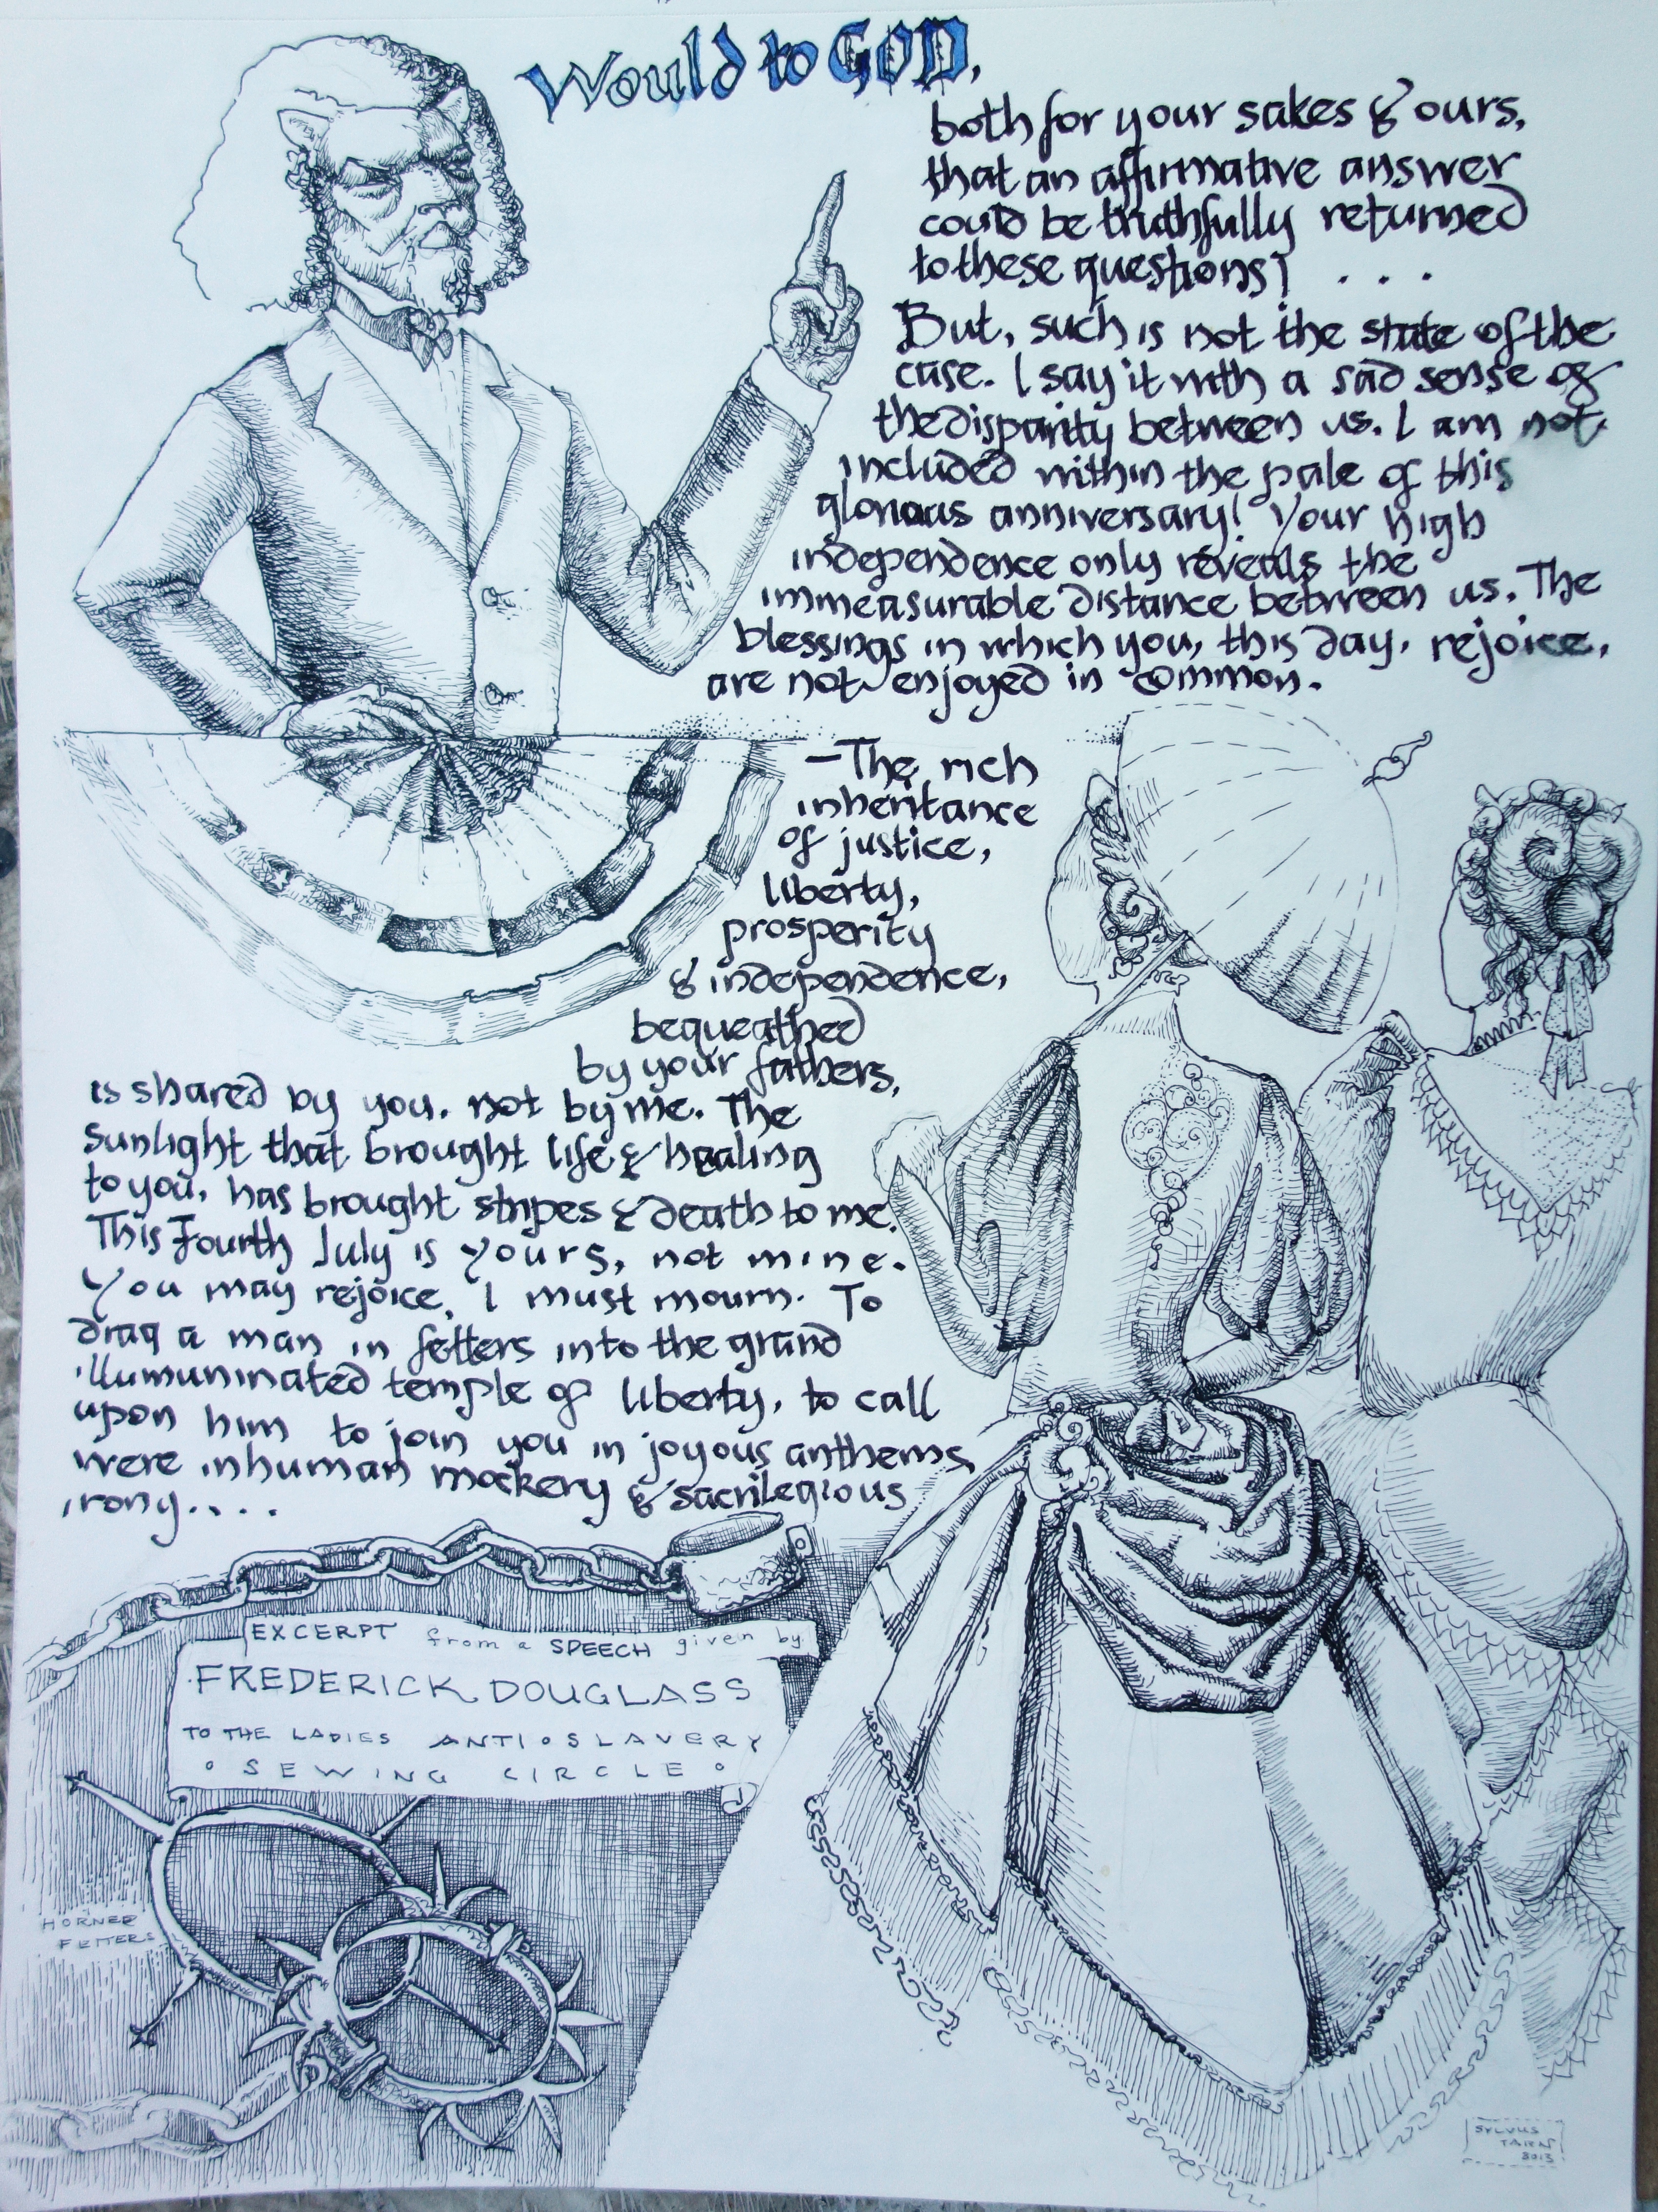 Would to GOD,
both for your sakes & ours,
that an affirmative answer
could be truthfully returned
to these questions! . . .
But, such is not the state of the
case. I say it with a sad sense of
the disparity between us. I am not
included within the pale of this
glorious anniversary! Your high
independence only reveals the
immeasurable distance between us. The
blessings in which you, this day, rejoice,
are not enjoyed in common.
—The rich
inheritance
of justice,
liberty,
prosperity
& independence,
bequeathed
by your fathers,
is shared by you, not by me. The
sunlight that brought life & healing
to you, has brought stripes & death to me.
This Fourth July is yours, not mine.
You may rejoice, I must mourn. To
drag a man in fetters into the grand
illumuninated temple of liberty, to call
upon him to join you in joyous anthems,
were inhuman mockery & sacrilegious
irony....
EXCERPT from a SPEECH given by
FREDERICK DOUGLASS
TO THE LADIES ANTI•SLAVERY
• SEWING CIRCLE •
HORNED
FETTERS